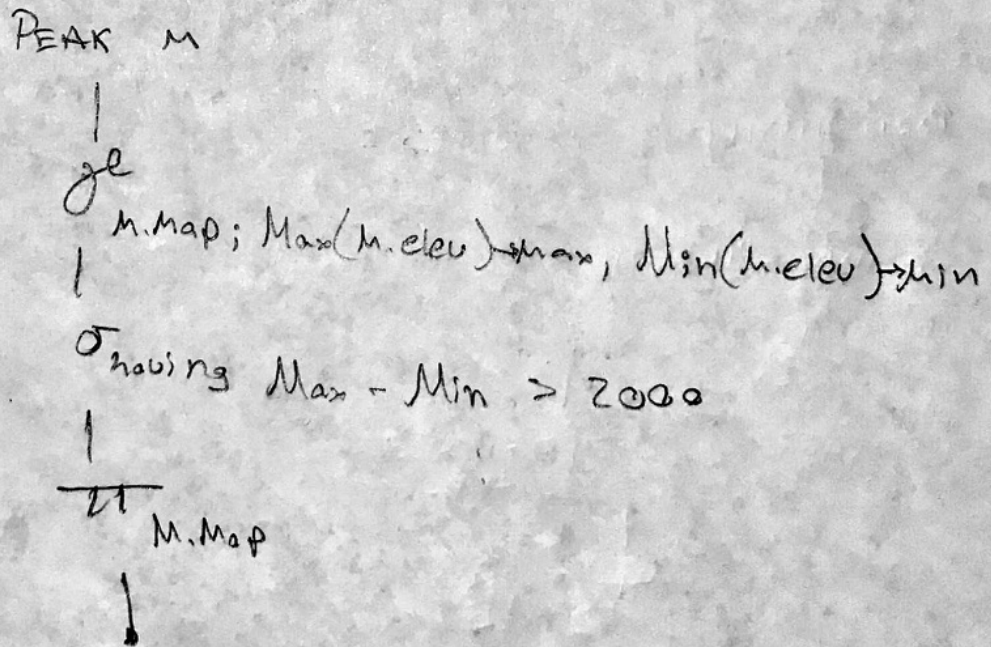 PEAK M
ge
M.Map; Max(M.elev)→max, Min(M.elev)→min
σ having Max - Min > 2000
π
M.Map